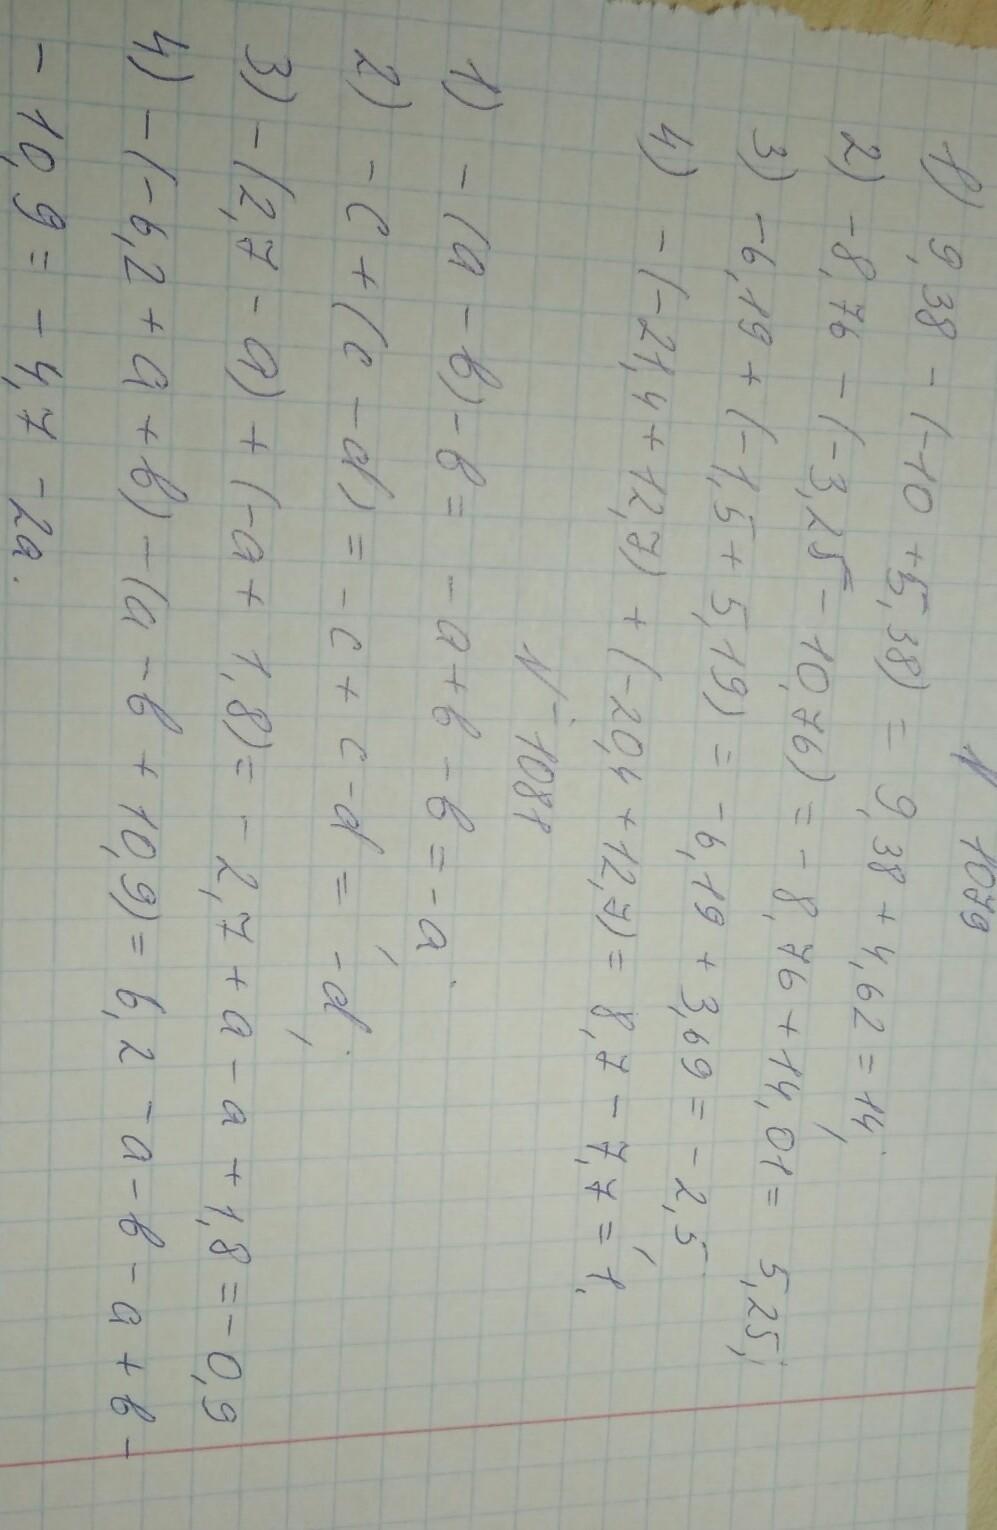 № 1079
1) 9,38 - (-10 + 5,38) = 9,38 + 4,62 = 14;
2) -8,76 - (-3,25 - 10,76) = -8,76 + 14,01 = 5,25;
3) -6,19 + (-1,5 + 5,19) = -6,19 + 3,69 = -2,5;
4) - (-21,4 + 12,7) + (-20,4 + 12,7) = 8,7 - 7,7 = 1.
№ 1081
1) - (a - b) - b = -a + b - b = -a;
2) - c + (c - d) = -c + c - d = -d;
3) - (2,7 - a) + (-a + 1,8) = -2,7 + a - a + 1,8 = -0,9
4) - (-6,2 + a + b) - (a - b + 10,9) = 6,2 - a - b - a + b -
- 10,9 = -4,7 - 2a.